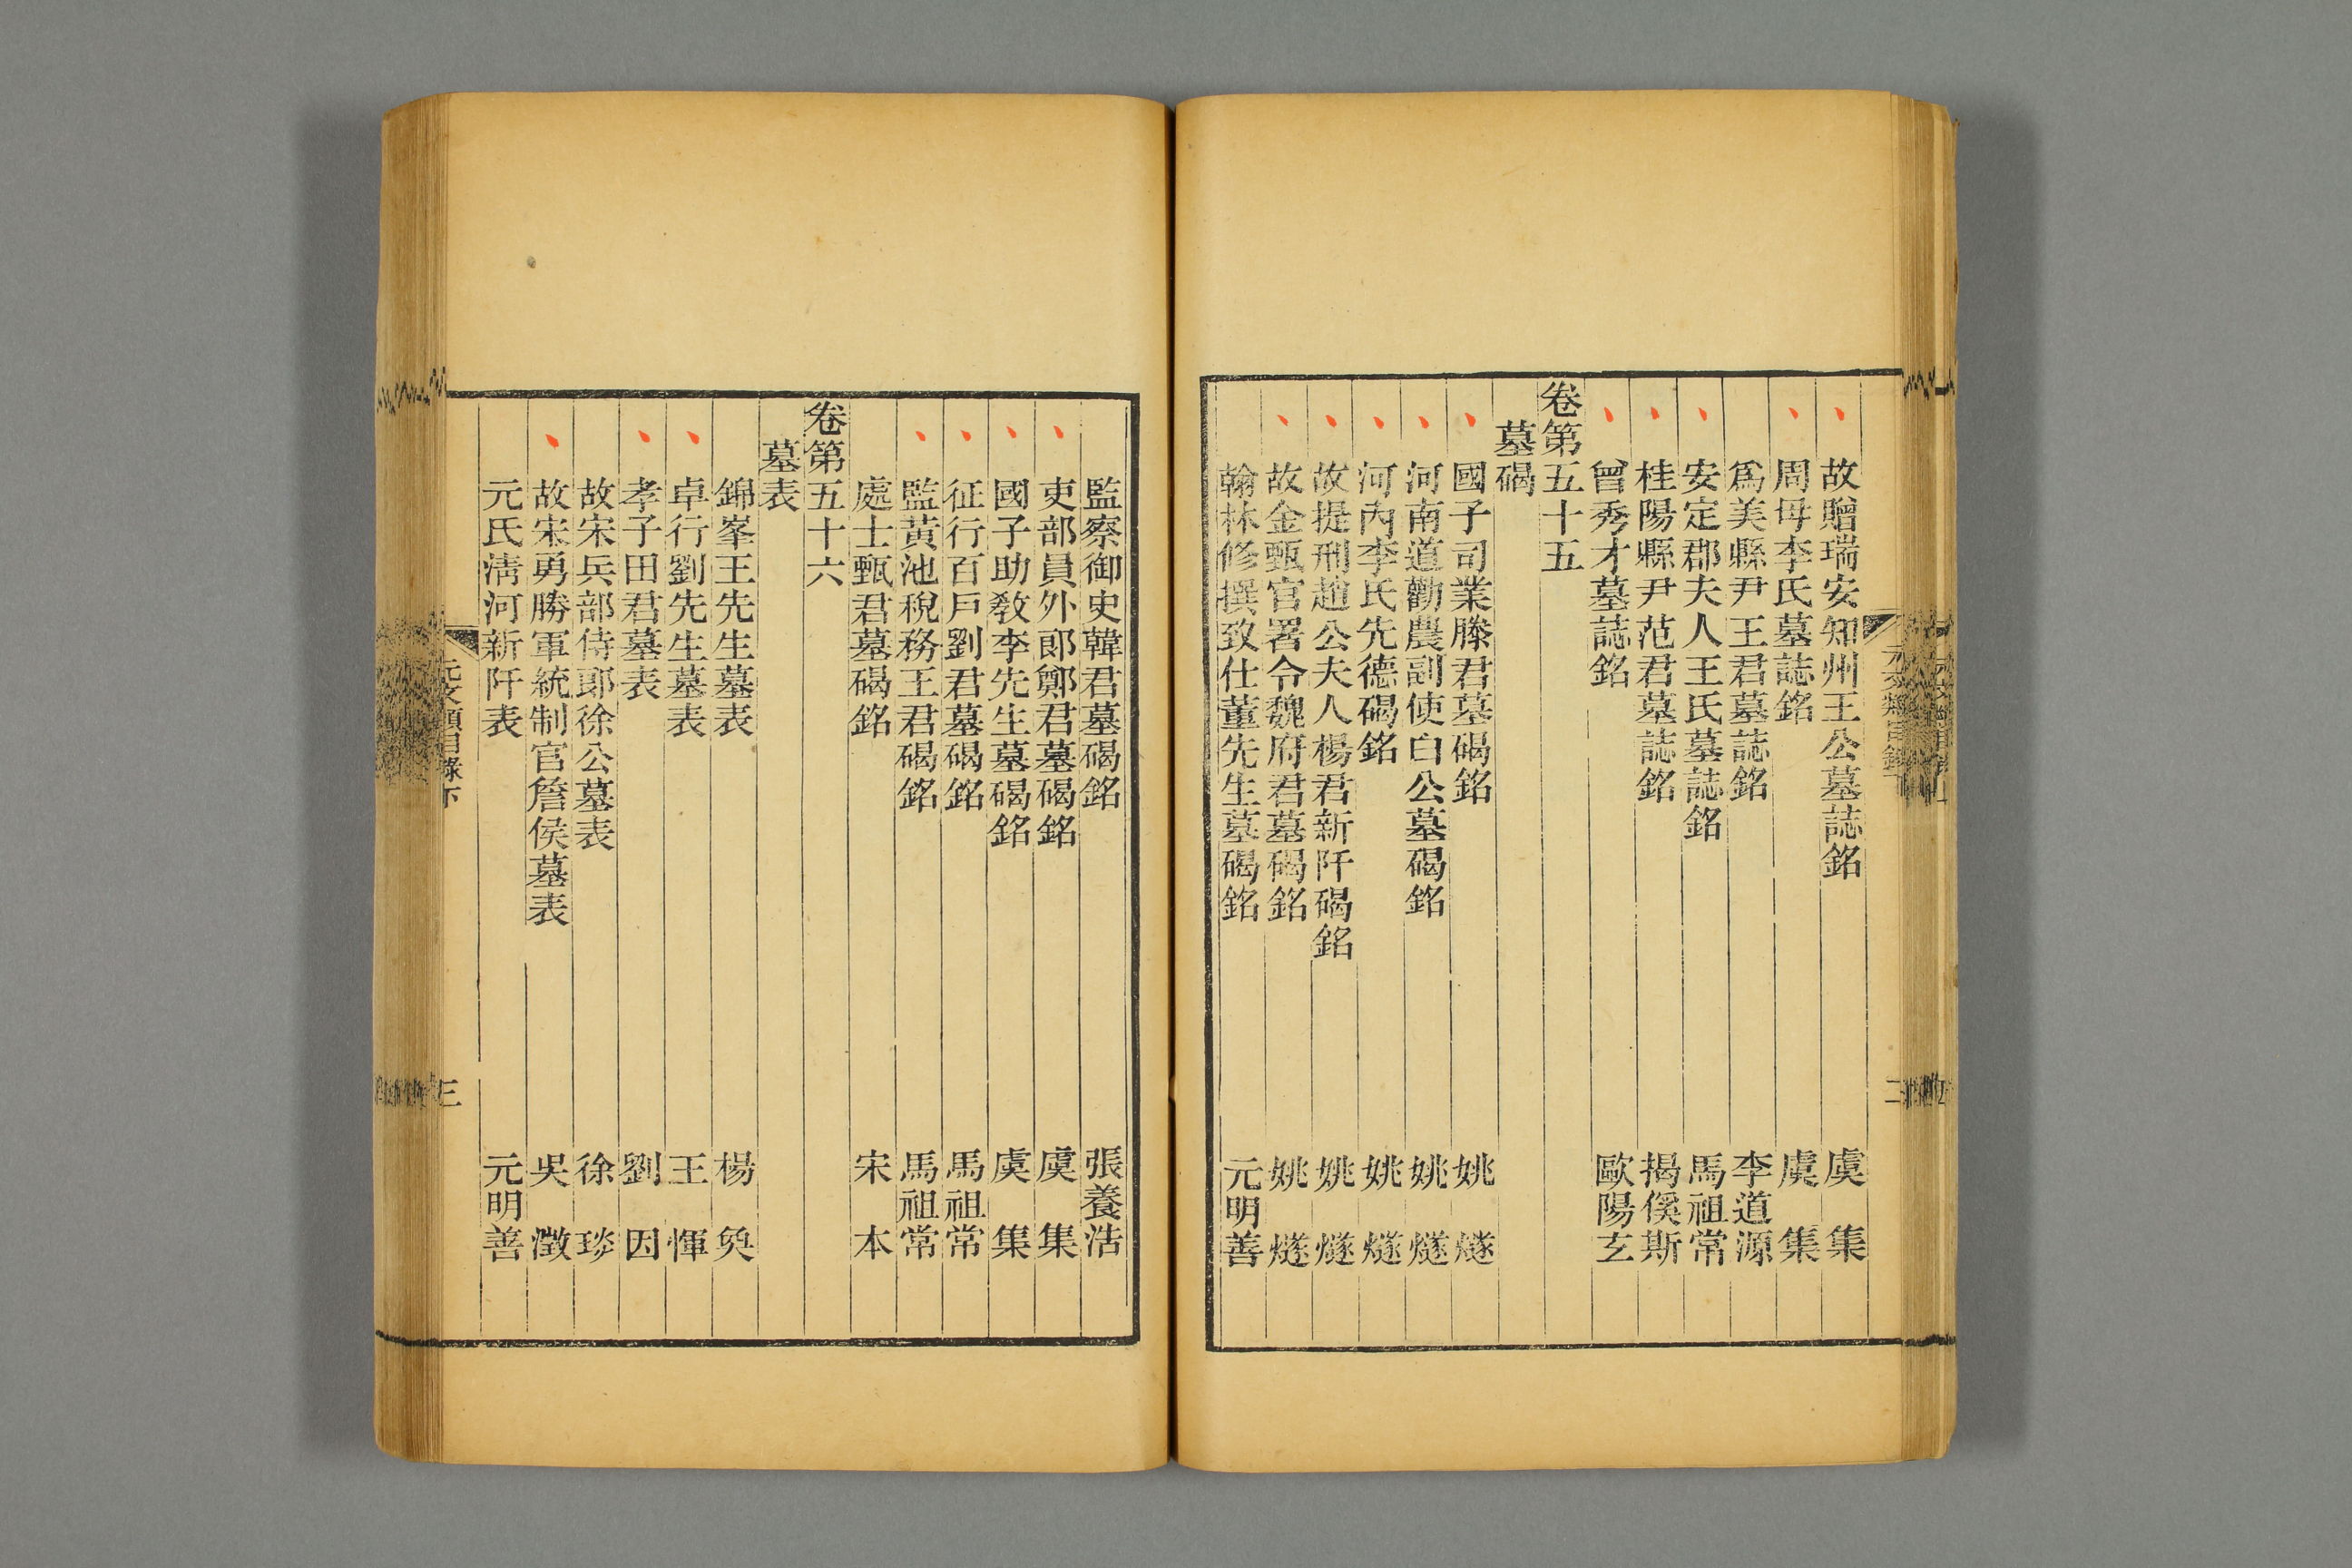 故贈瑞安知州王公墓誌銘 虞集
周母李氏墓誌銘 虞集
爲美縣尹王君墓誌銘 李道源
安定郡夫人王氏墓誌銘 馬祖常
桂陽縣尹范君墓誌銘 揭傒斯
曾秀才墓誌銘 歐陽玄
卷第五十五
墓碣
國子司業滕君墓碣銘 姚燧
河南道勸農副使白公墓碣銘 姚燧
河內李氏先德碣銘 姚燧
故提刑趙公夫人楊君新阡碣銘 姚燧
故金甄官署令魏府君墓碣銘 姚燧
翰林修撰致仕董先生墓碣銘 元明善
監察御史韓君墓碣銘 張養浩
吏部員外郎鄭君墓碣銘 虞集
國子助敎李先生墓碣銘 虞集
征行百戶劉君墓碣銘 馬祖常
監黃池稅務王君碣銘 馬祖常
處士甄君墓碣銘 宋本
卷第五十六
墓表
錦峯王先生墓表 楊奐
卓行劉先生墓表 王惲
孝子田君墓表 劉因
故宋兵部侍郎徐公墓表 徐琰
故宋勇勝軍統制官詹侯墓表 吳澂
元氏淸河新阡表 元明善
元文類目錄下
三